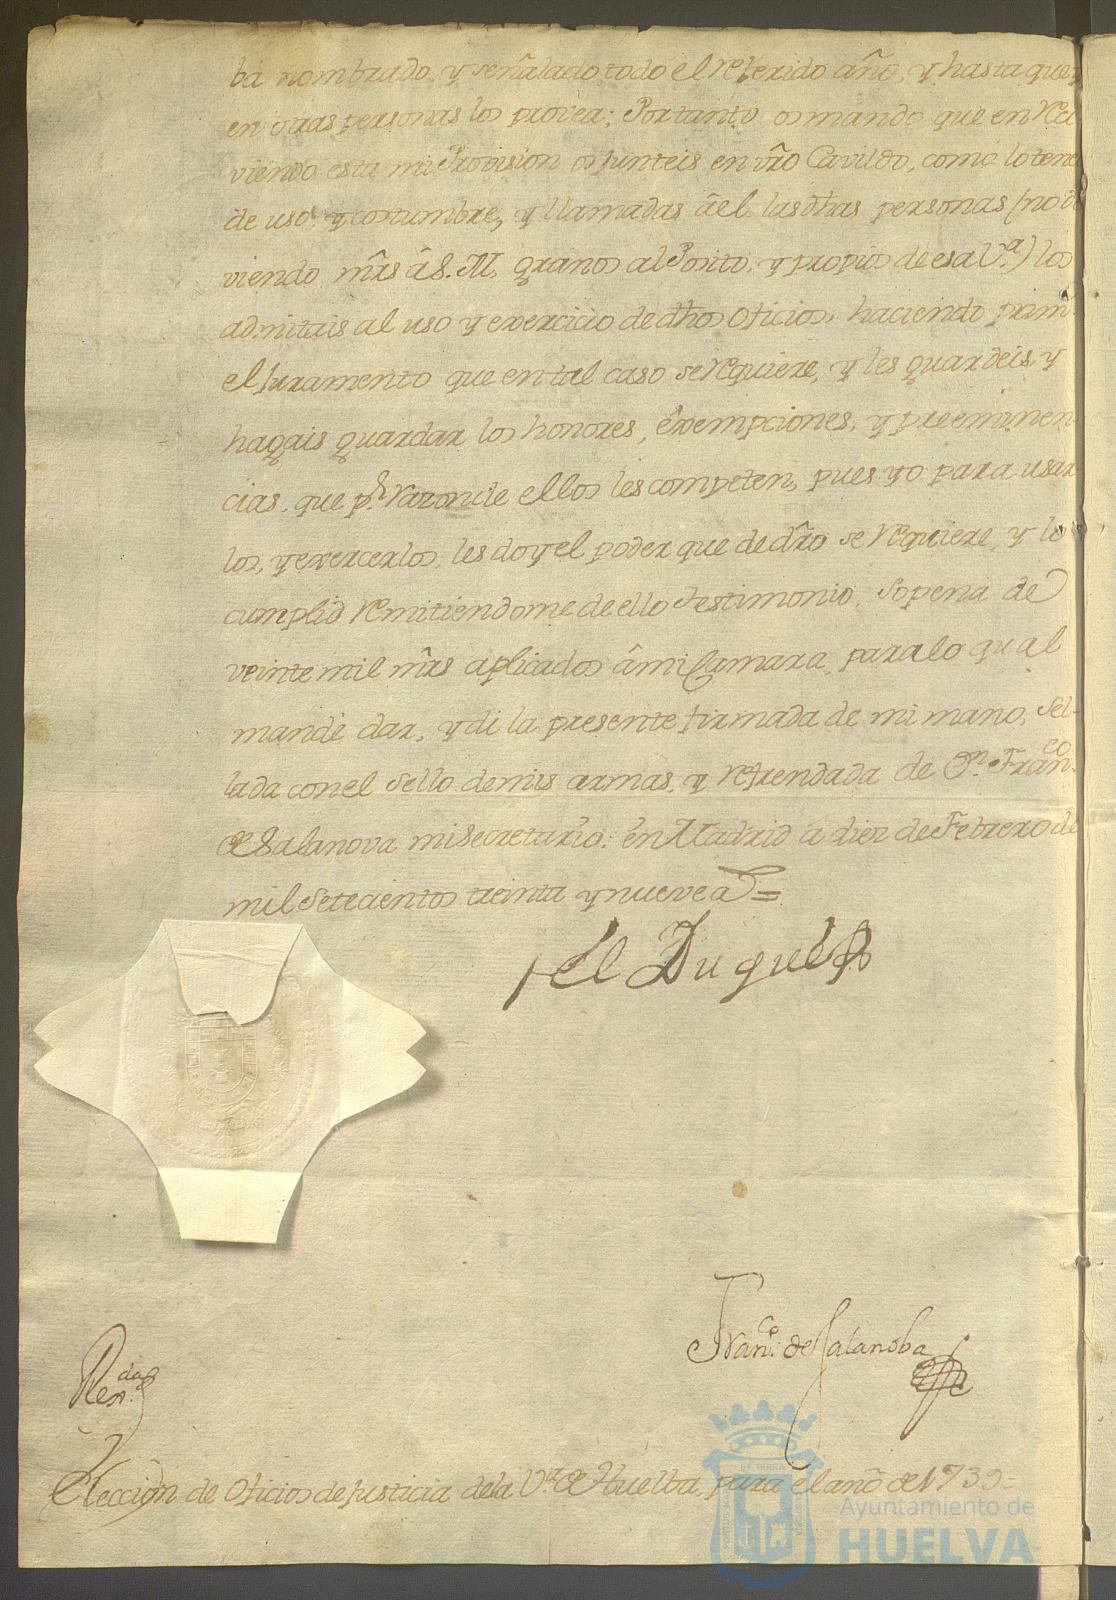 ba nombrado, y señalado todo el referido año, y hasta que
en otras personas los provea; Portanto os mando que en reci
viendo esta mi Provision os Junteis en vrõ Cavildo, como lo tene
de uso, y costumbre, y llamadas âel las dhas personas (no de
viendo mrs̃ â S. M. granos al Posito, y propios de esa V.ª) los
admitais al uso y exercicio de dhos oficios, haciendo prim
el Juramento que en tal caso se requiere, y les guardeis, y
hagais guardar los honores, exempciones, y preeminen
cias, que p.r razon de ellos les competen, pues yo para usar
los, y exercerlos, les doy el poder que de drõ se requiere, y lo
cumplid remitiendome de ello testimonio, sopena de
veinte mil mrs̃ aplicados âmi Camara, para lo qual
mandé dar, y di la presente firmada de mi mano, sel-
lada con el sello de mis armas, y refrendada de Dn. Fran.co
de Salanova mi Secretario. en Madrid a diez de Febrero de
mil setecientos treinta y nueve a.s =
El Duque
Fran.co de Salanoba
Ren.da
Elección de Oficios de Justicia de la V.ª de Huelba, para el año de 1739=
Ayuntamiento de
HUELVA